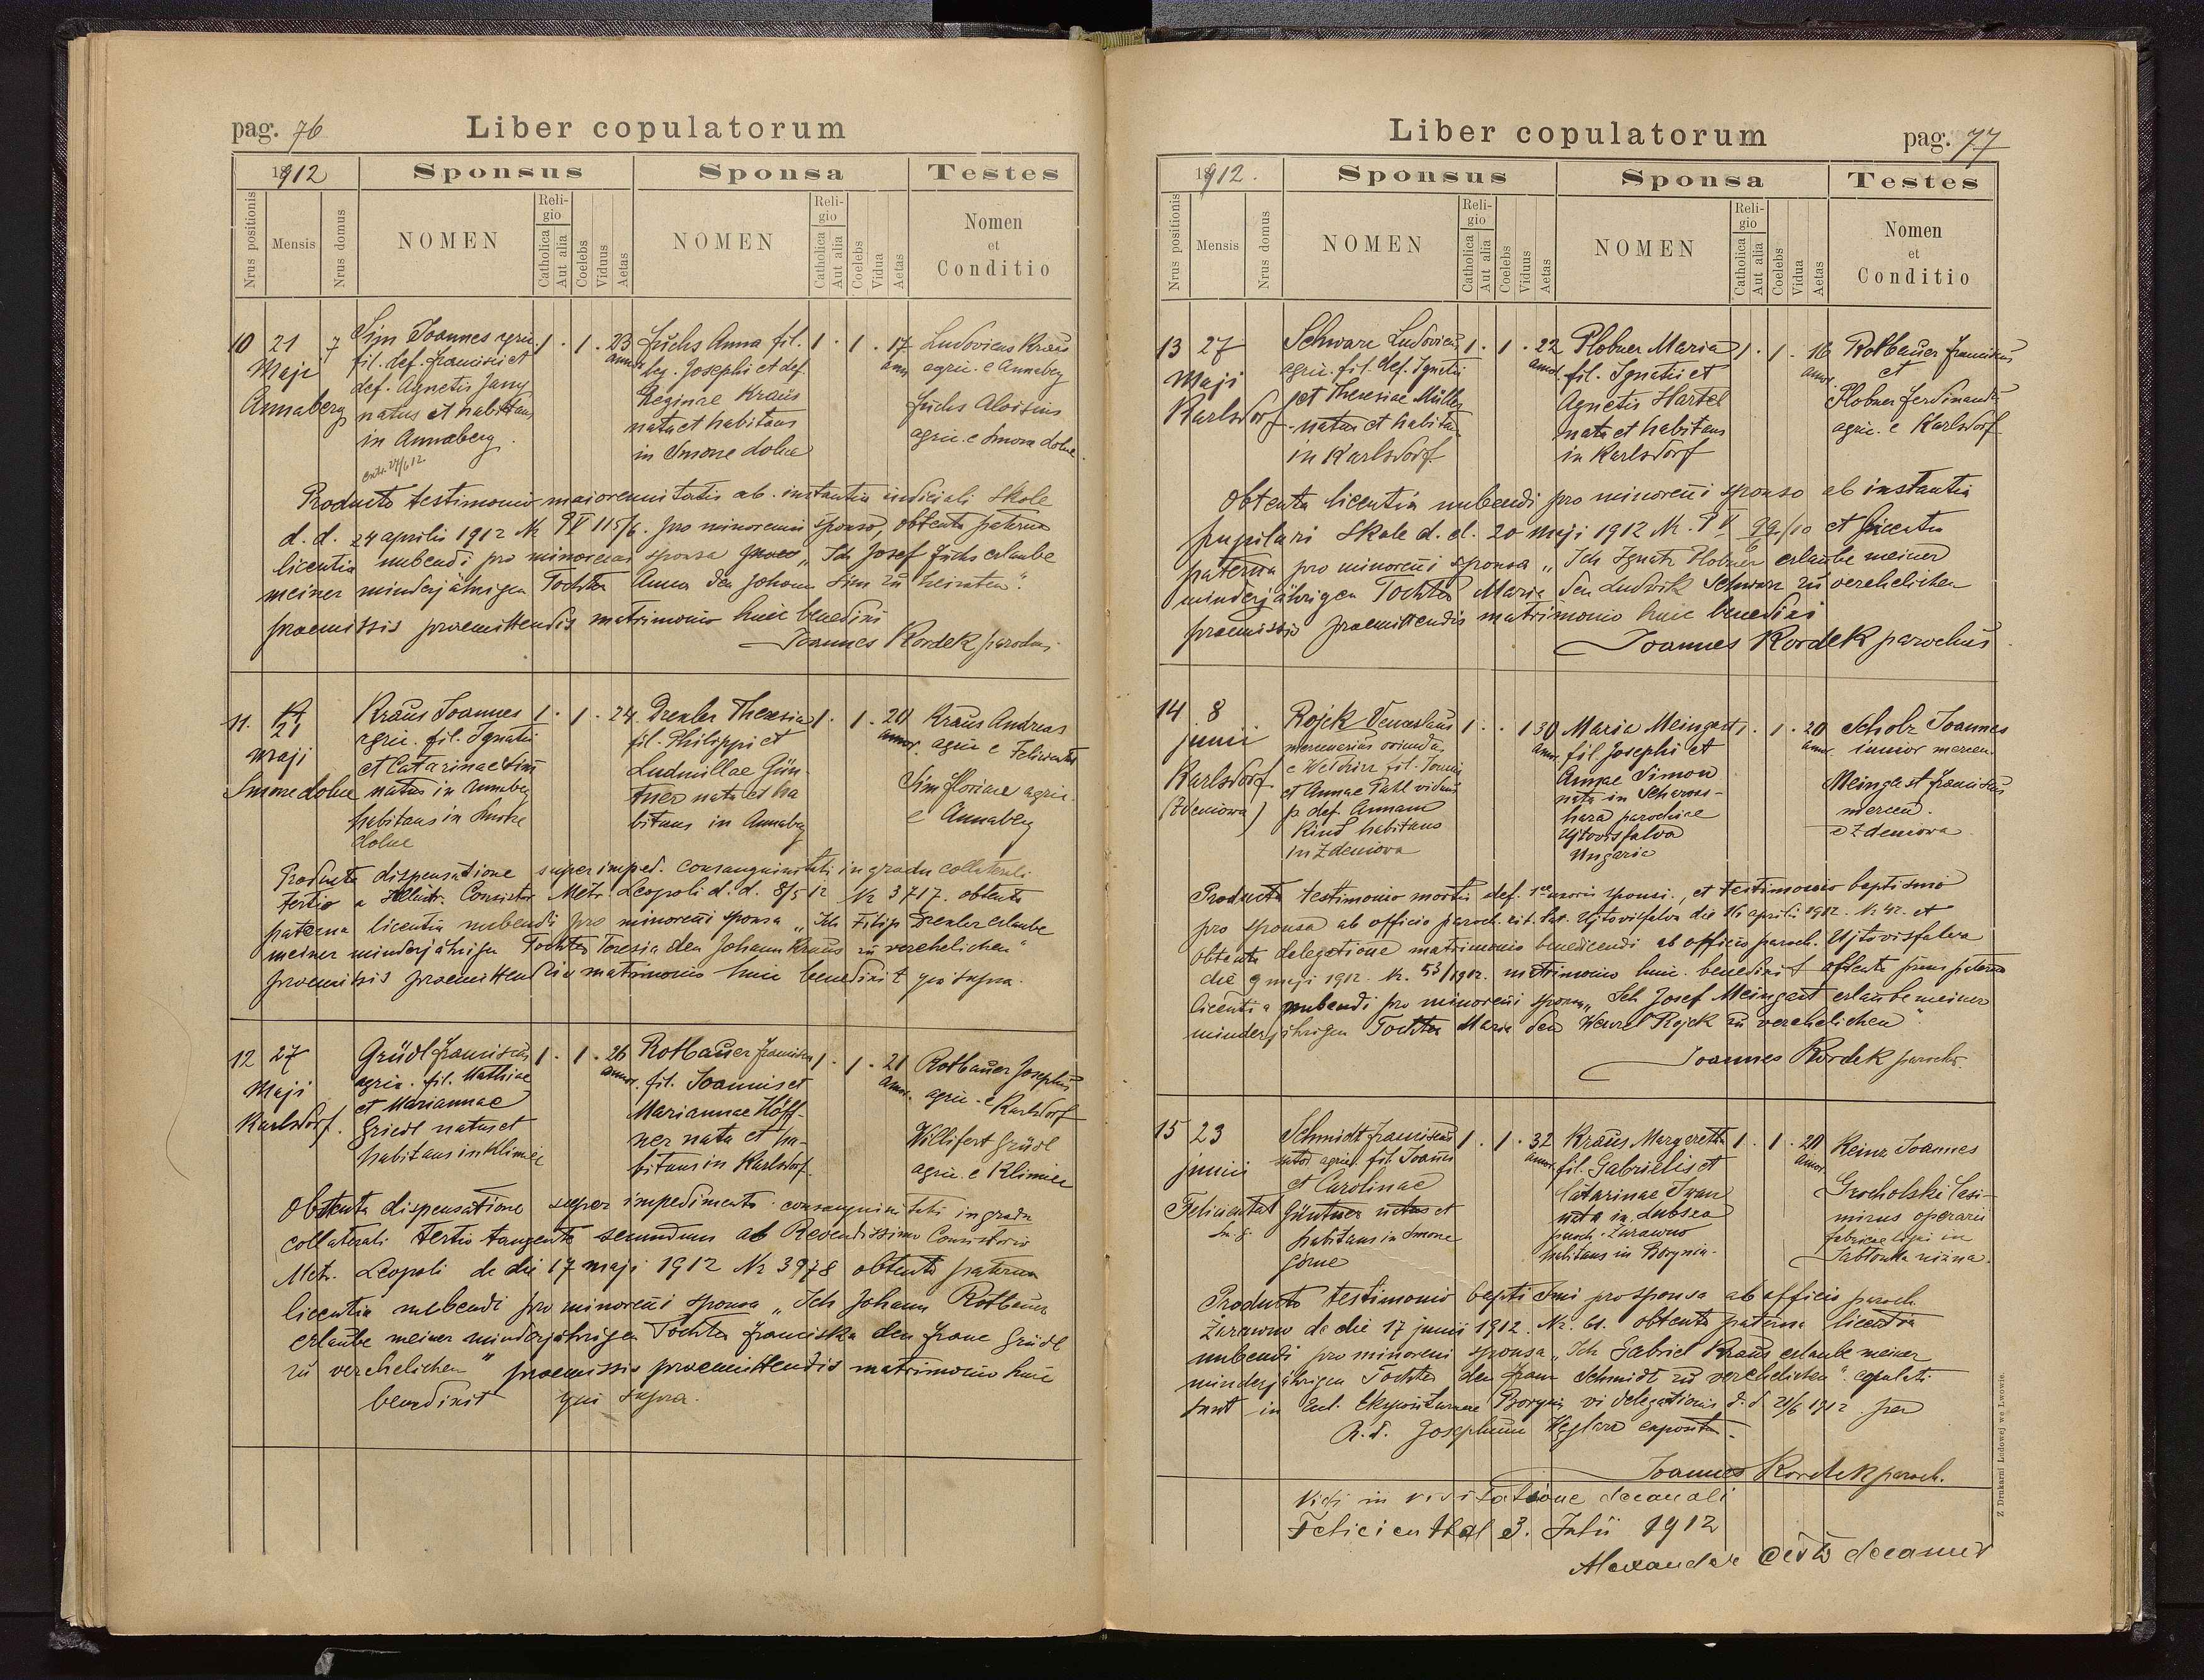 pag. 76
Liber copulatorum
1912
Sponsus
Sponsa
Testes
Nrus positionis
Mensis
Nrus domus
NOMEN
Religio
Catholica
Aut alia
Coelebs
Viduus
Aetas
NOMEN
Religio
Catholica
Aut alia
Coelebs
Vidua
Aetas
Nomen
et
Conditio
10 21 7
Maji
Annaberg
Sim Joannes agric.
fil. def. Francisci et
def. Agnetis Jarny
natus et habitans
in Annaberg.
1 . 1 . 23
annor
Fuchs Anna fil.
leg. Josephi et def.
Reginae Kraus
nata et habitans
in Smorze dolne
1 . 1 . 17
ann
Ludovicus Kraus
agric. e Annaberg
Fuchs Aloisius
agric. e Smorze dolne.
Producto testimonio maiorennitatis ab instantia iudiciali Skole
d. d. 24 aprilis 1912 Nr PV 115/6. pro minorenni sponso, obtenta paterna
licentia nubendi pro minorenni sponsa „Ich Josef Fuchs erlaube
meiner minderjährigen Tochter Anna den Johann Sim zu heiraten".
praemissis praemittendis matrimonio huic benedixi
Joannes Kordek parochus
11. 21
Maji
Smorze dolne
Kraus Joannes
agric. fil. Ignatii
et Catarinae Sim
natus in Annaberg
habitans in Smorze
dolne
1 . 1 . 24
Drexler Theresia
fil. Philippi et
Ludmillae Gün-
tner nata et ha
bitans in Annaberg
1 . 1 . 20
annor.
Kraus Andreas
agric e Felicienthal
Sim Floriane agric.
e Annaberg
Producta dispensatione super imped. consanguinitatis in gradu collaterali
tertio a Illustr. Consistor. Metr. Leopoli d. d. 8/5 12 Nr 3717. obtenta
paterna licentia nubendi pro minorenni sponsa „Ich Filip Drexler erlaube
meiner minderjährigen Tochter Teresia den Johann Kraus zu verehelichen"
praemissis praemittendis matrimonio huic benedixit qui supra.
12 27
Maji
Karlsdorf.
Grüdl Franciscus
agric. fil. Mathiae
et Mariannae
Griedl natus et
habitans in Klimiec
1 . 1 . 26
annor.
Rotbauer Francisca
fil. Joannis et
Mariannae Höff-
ner nata et ha-
bitans in Karlsdorf.
1 . 1 . 21
annor.
Rotbauer Josephus
agric. e Karlsdorf
Willifert Grüdl
agric. e Klimiec
Obtenta dispensatione super impedimento consanguinitatis in gradu
collaterali tertio tangente secundum ab Revendissimo Consistorio
Metr. Leopoli de die 17 maji 1912 Nr 3978 obtenta paterna
licentia nubendi pro minorenni sponsa „Ich Johann Rotbauer
erlaube meiner minderjährigen Tochter Franciska den Franc Grüdl
zu verehelichen" praemissis praemittendis matrimonio huic
benedixit qui supra.
Liber copulatorum
pag. 77
1912.
Sponsus
Sponsa
Testes
Nrus positionis
Mensis
Nrus domus
NOMEN
Religio
Catholica
Aut alia
Coelebs
Viduus
Aetas
NOMEN
Religio
Catholica
Aut alia
Coelebs
Vidua
Aetas
Nomen
et
Conditio
13 27
Maji
Karlsdorf
Schwarz Ludovicus
agric. fil. def. Ignatii
et Theresiae Müller
natus et habitans
in Karlsdorf.
1 . 1 . 22
annor.
Plobner Maria
fil. Ignatii et
Agnetis Hartel
nata et habitans
in Karlsdorf
1 . 1 . 16
annor.
Rotbauer Franciscus
et
Plobner Ferdinandus
agric. e Karlsdorf
Obtenta licentia nubendi pro minorenni sponso ab instantia
pupilari Skole d. d. 20 maji 1912 Nr. PV 99/10 et licentia
paterna pro minorenni sponsa „Ich Ignatz Plobner erlaube meiner
minderjährigen Tochter Maria den Ludwik Schwarz zu verehelichen
praemissis praemittendis matrimonio huic benedixi
Joannes Kordek parochus
14 8
junii
Karlsdorf
(Zdeniowa)
Rojek Venceslaus
mercenarius oriundus
fil. Joannis
et Annae Pahl viduus
p. def. Annam
Kind habitans
in Zdeniowa
1 . . 1 30
ann.
Maria Meingast
fil Josephi et
Annae Simon
nata in Schwas-
hara parochiae
Ujtovisfalva
Ungaria
1 . 1 . 20
annor
Scholz Joannes
iunior mercen.
Meingast Franciscus
mercen.
e Zdeniowa
Producto testimonio mortis def. uxoris sponsi, et testimonio baptismi
pro sponsa ab officio paroch. rit. lat. Ujtovisfalva die 16 aprilis 1912. Nr 42. et
obtenta delegatione matrimonio benedicendi ab officio paroch. Ujtovisfalva
die 9 maji 1912. Nr. 53/1912. matrimonio huic benedixi obtenta paterna
licentia nubendi pro minorenni sponsa „Ich Josef Meingast erlaube meiner
minderjährigen Tochter Maria den Wenzel Rojek zu verehelichen".
Joannes Kordek parochus.
15 23
junii
Felicientat
Schmidt Franciscus
agric. fil. Joannis
et Carolinae
Güntner natus et
habitans in Smorze
górne
1 . 1 . 32
annor.
Kraus Margeretta
fil. Gabrielis et
Catarinae Iwan
nata in Lubsza
paroch. Żurawno
habitans in Borynia.
1 . 1 . 20
annor.
Keinz Joannes
Grocholski Casi-
mirus operarii
fabricae ligni in
Jabłonka niżna.
Producto testimonio baptismi pro sponsa ab officio paroch.
Żurawno de die 17 junii 1912. Nr. 61. obtenta paterna licentia
nubendi pro minorenni sponsa „Ich Gabriel Kraus erlaube meiner
minderjährigen Tochter den Franz Schmidt zu verehelichen". copulati
sunt in Expositurae Borynia vi delegationis d. d. 21/6 1912 per
R. D. Josephum Węglarz exposit.
Joannes Kordek paroch.
Vidi in visitatione decanali
Felicienthal 3. Julii 1912
Alexander decanus
Z Drukarni Ludowej we Lwowie.